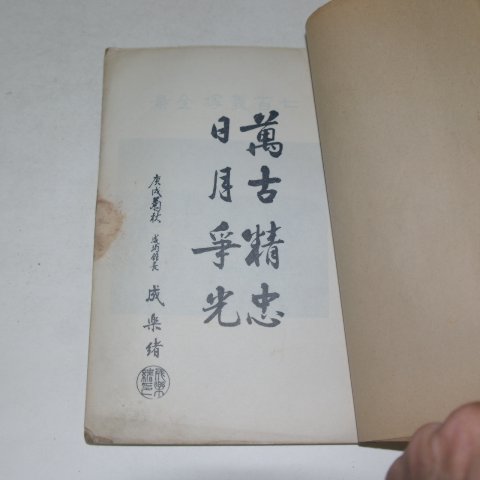 萬古精忠
日月爭光
庚戌菊秋 成均館長
成樂緖